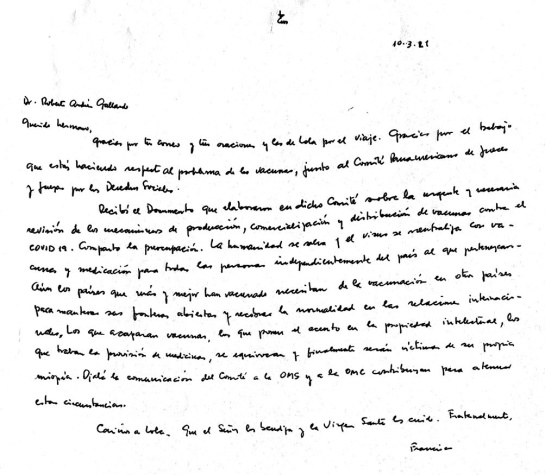 10.3.21
Dr. Roberto Andrés Gallardo
Querido hermano,
gracias por tu correo y tus oraciones y las de Lola por el viaje. Gracias por el trabajo
que estás haciendo respecto al problema de las vacunas, junto al Comité Panamericano de Jueces
y Juezas por los Derechos Sociales.
Recibí el Documento que elaboraron en dicho Comité sobre la urgente y necesaria
revisión de los mecanismos de producción, comercialización y distribución de vacunas contra el
COVID 19. Comparto la preocupación. La humanidad se salva y el virus se neutraliza con va-
cunas y medicación para todas las personas independientemente del país al que pertenezcan.
Aún los países que más y mejor han vacunado necesitan de la vacunación en otros países
para mantener sus fronteras abiertas y recobrar la normalidad en las relaciones internacio-
nales. Los que acaparan vacunas, los que ponen el acento en la propiedad intelectual, los
que traban la provisión de medicinas, se equivocan y finalmente serán víctimas de su propia
miopía. Ojalá la comunicación del Comité a la OMS y a la OMC contribuyan para atenuar
estas circunstancias.
Cariños a Lola. Que el Señor los bendiga y la Virgen Santa los cuide. Fraternalmente,
Francisco